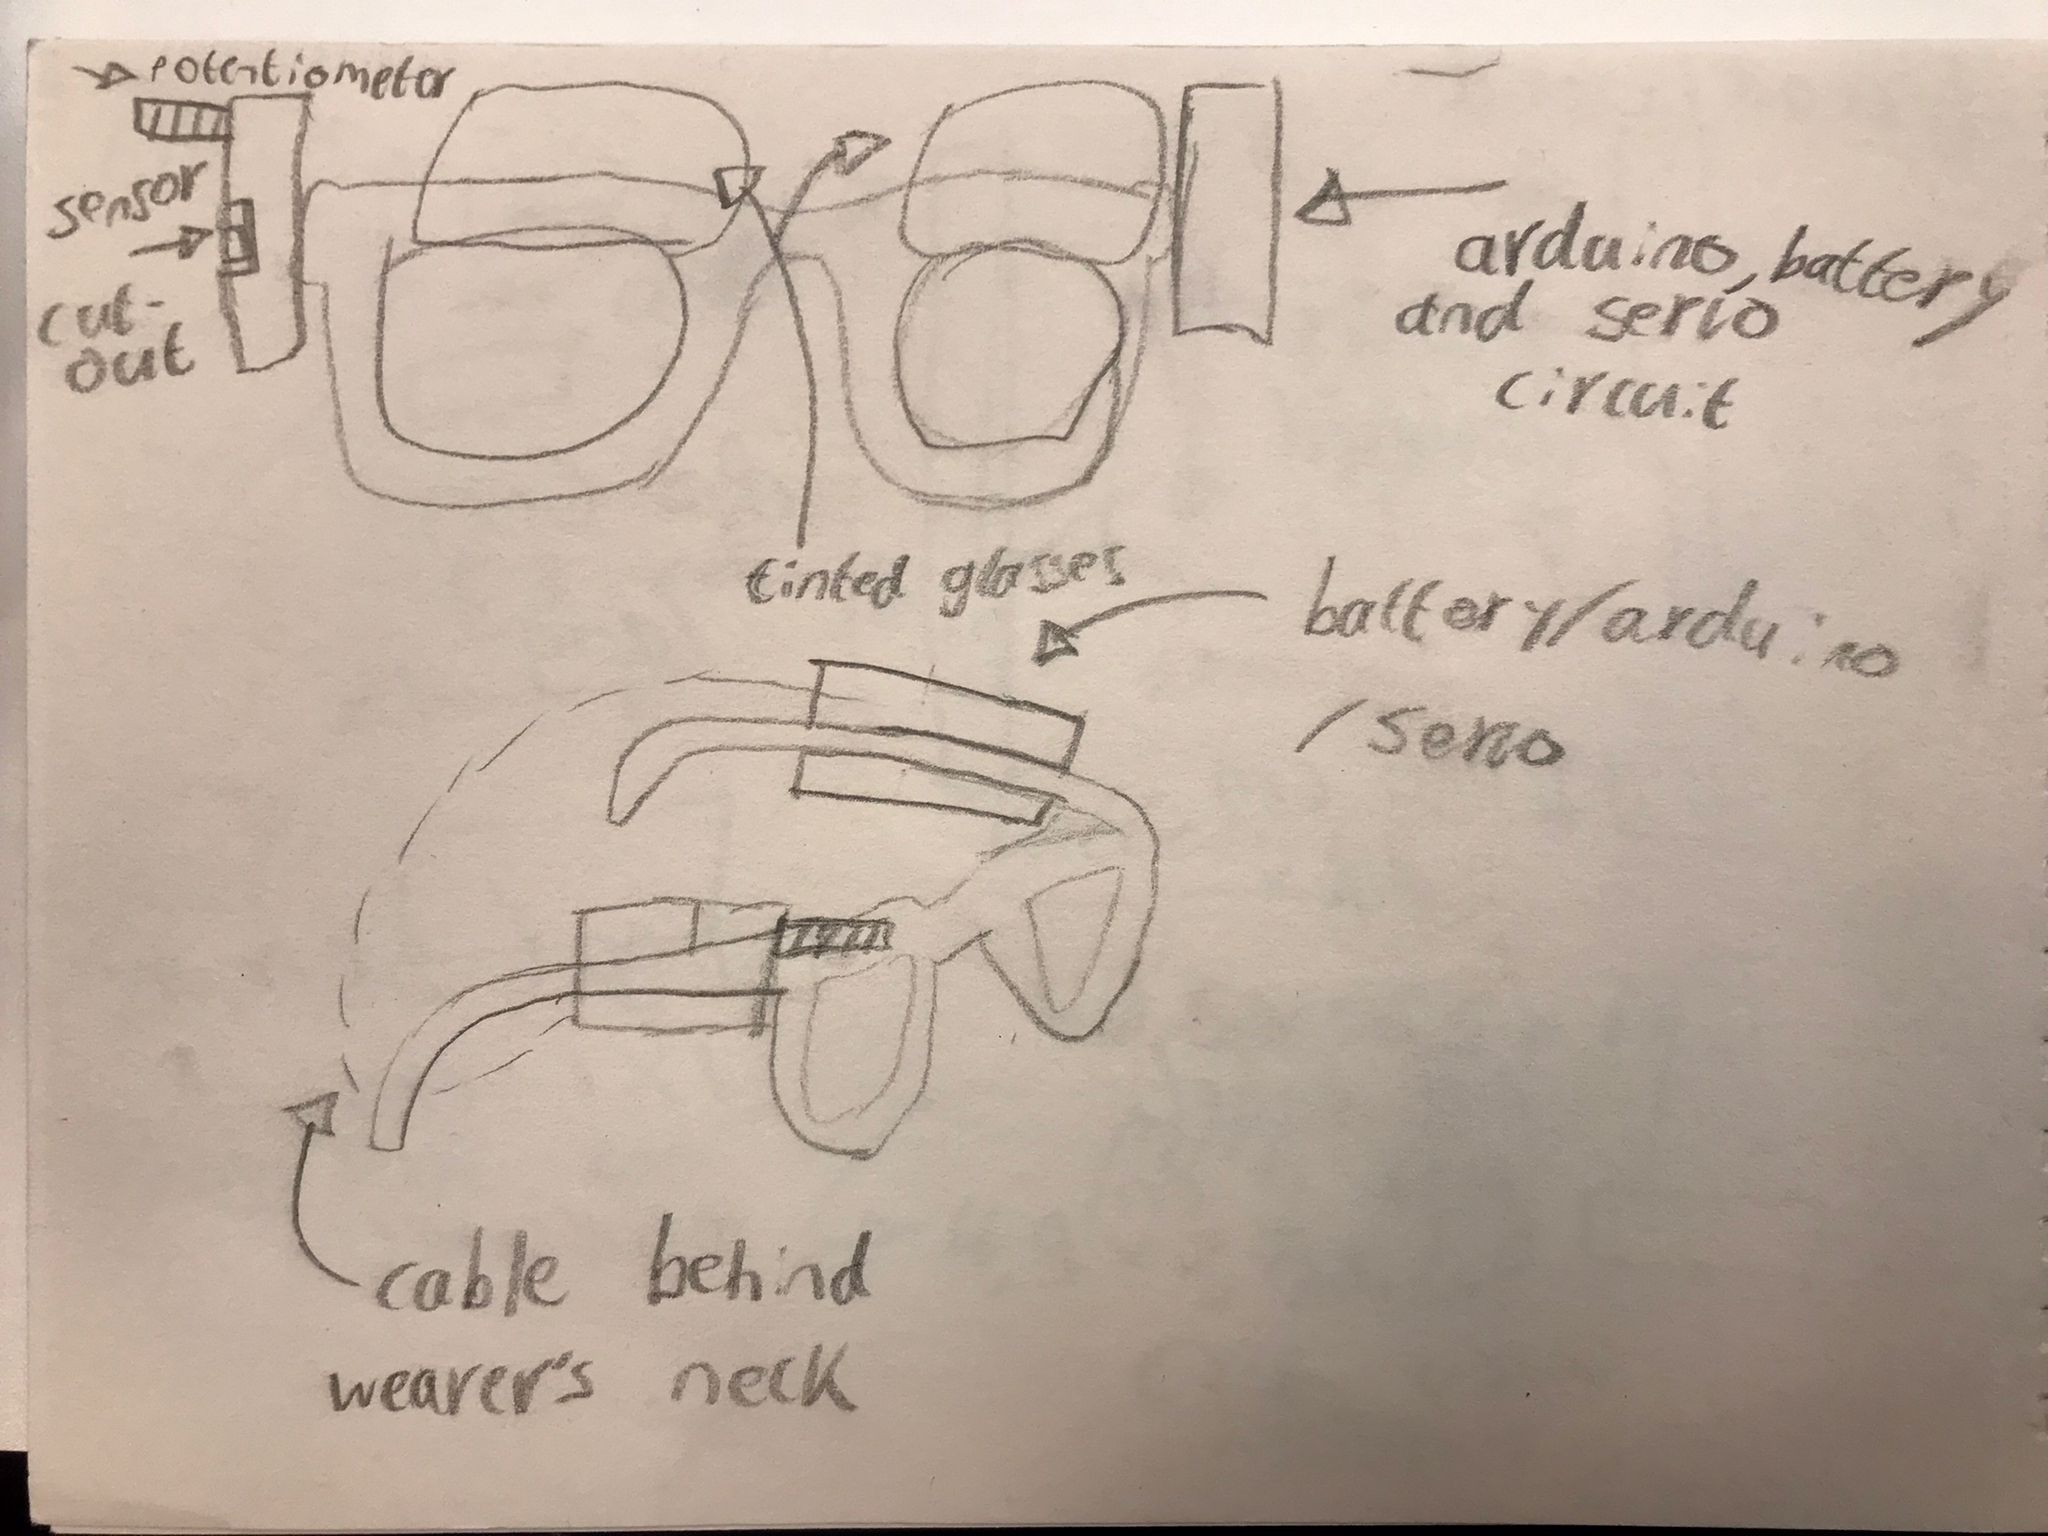 potentiometer
sensor
cut-
out
arduino, battery
and serio
circuit
tinted glasses
battery/arduino
/serio
cable behind
wearer's neck